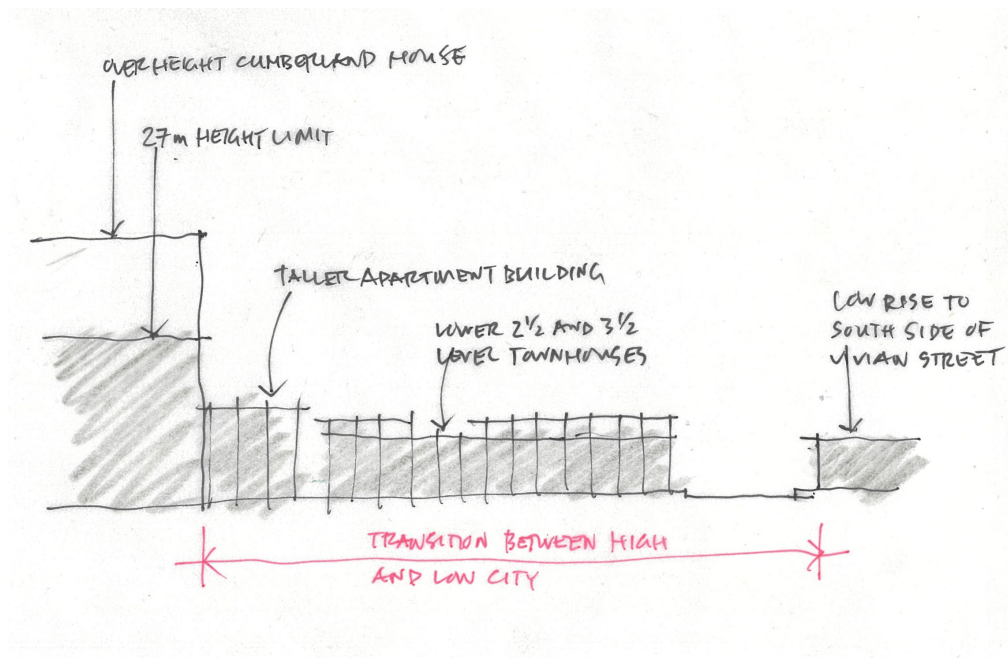 OVERHEIGHT CUMBERLAND HOUSE
27m HEIGHT LIMIT
TALLER APARTMENT BUILDING
LOWER 2½ AND 3½
LEVEL TOWNHOUSES
LOW RISE TO
SOUTH SIDE OF
VIVIAN STREET
TRANSITION BETWEEN HIGH
AND LOW CITY